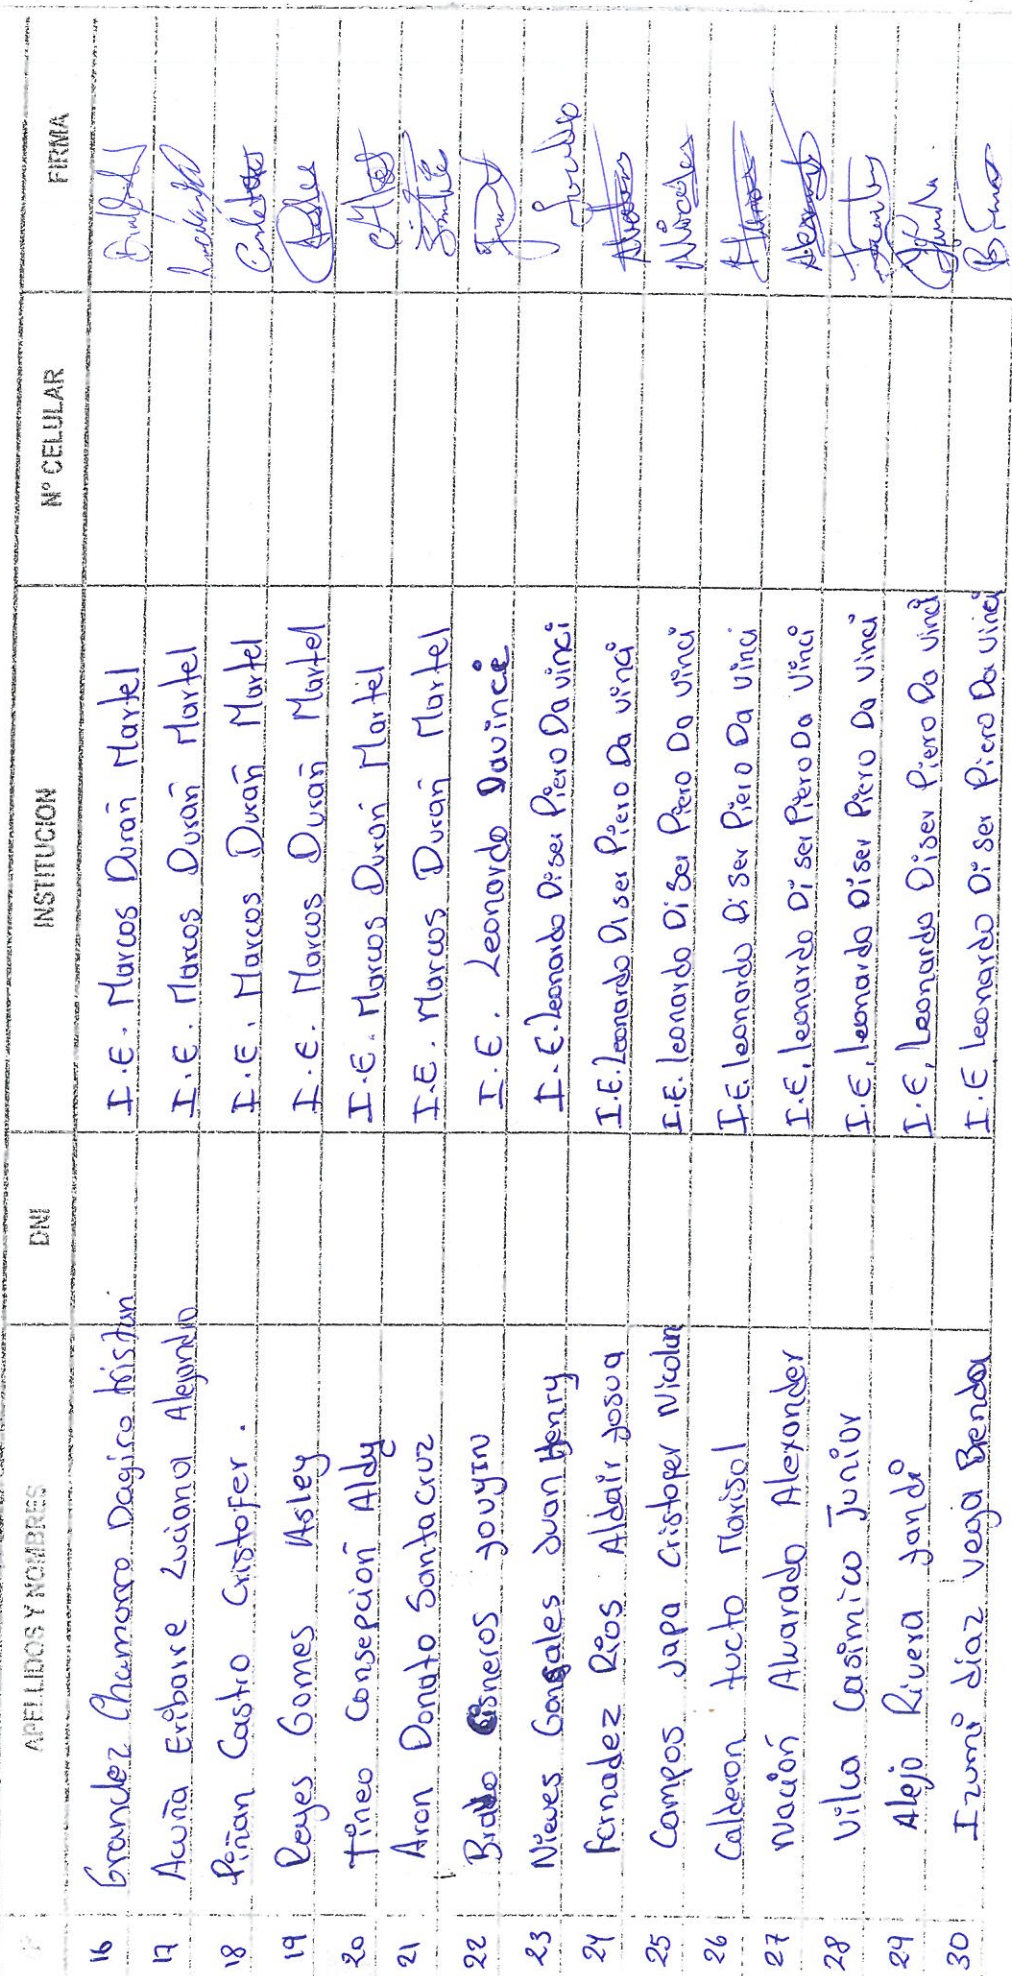 APELLIDOS Y NOMBRES DNI INSTITUCION N° CELULAR FIRMA
16 Grandez Chamorro Dagiro tristan I.E. Marcos Durán Martel
17 Acuña Eribarre Luciana Alejandra I.E. Marcos Durán Martel
18 Piñan Castro Cristofer. I.E. Marcos Durán Martel
19 Reyes Gomes Asley I.E. Marcos Durán Martel
20 tineo Consepción Aldy I.E. Marcos Durán Martel
21 Aron Donato Santa Cruz I.E. Marcos Durán Martel
22 Bravo Cisneros Jouyin I.E. Leonardo Davince
23 Nieves Gonsales Juan Henry I.E. Leonardo Diser Piero Da vinci
24 Fernadez Ríos Aldair Josua I.E. Leonardo Diser Piero Da vinci
25 Campos Japa Cristoper Nicolas I.E. leonardo Di Ser Piero Da Vinci
26 Calderon tucto Marisol I.E. leonardo Di ser Piero Da Vinci
27 Nación Alvarado Alexander I.E. leonardo Di ser Piero Da Vinci
28 Vilca Casimiro Junior I.E. leonardo Diser Piero Da Vinci
29 Alejo Rivera Jandi I.E. Leonardo Diser Piero Da Vinci
30 Izumi díaz vega Brenda I.E leonardo Di ser Piero Da vinci